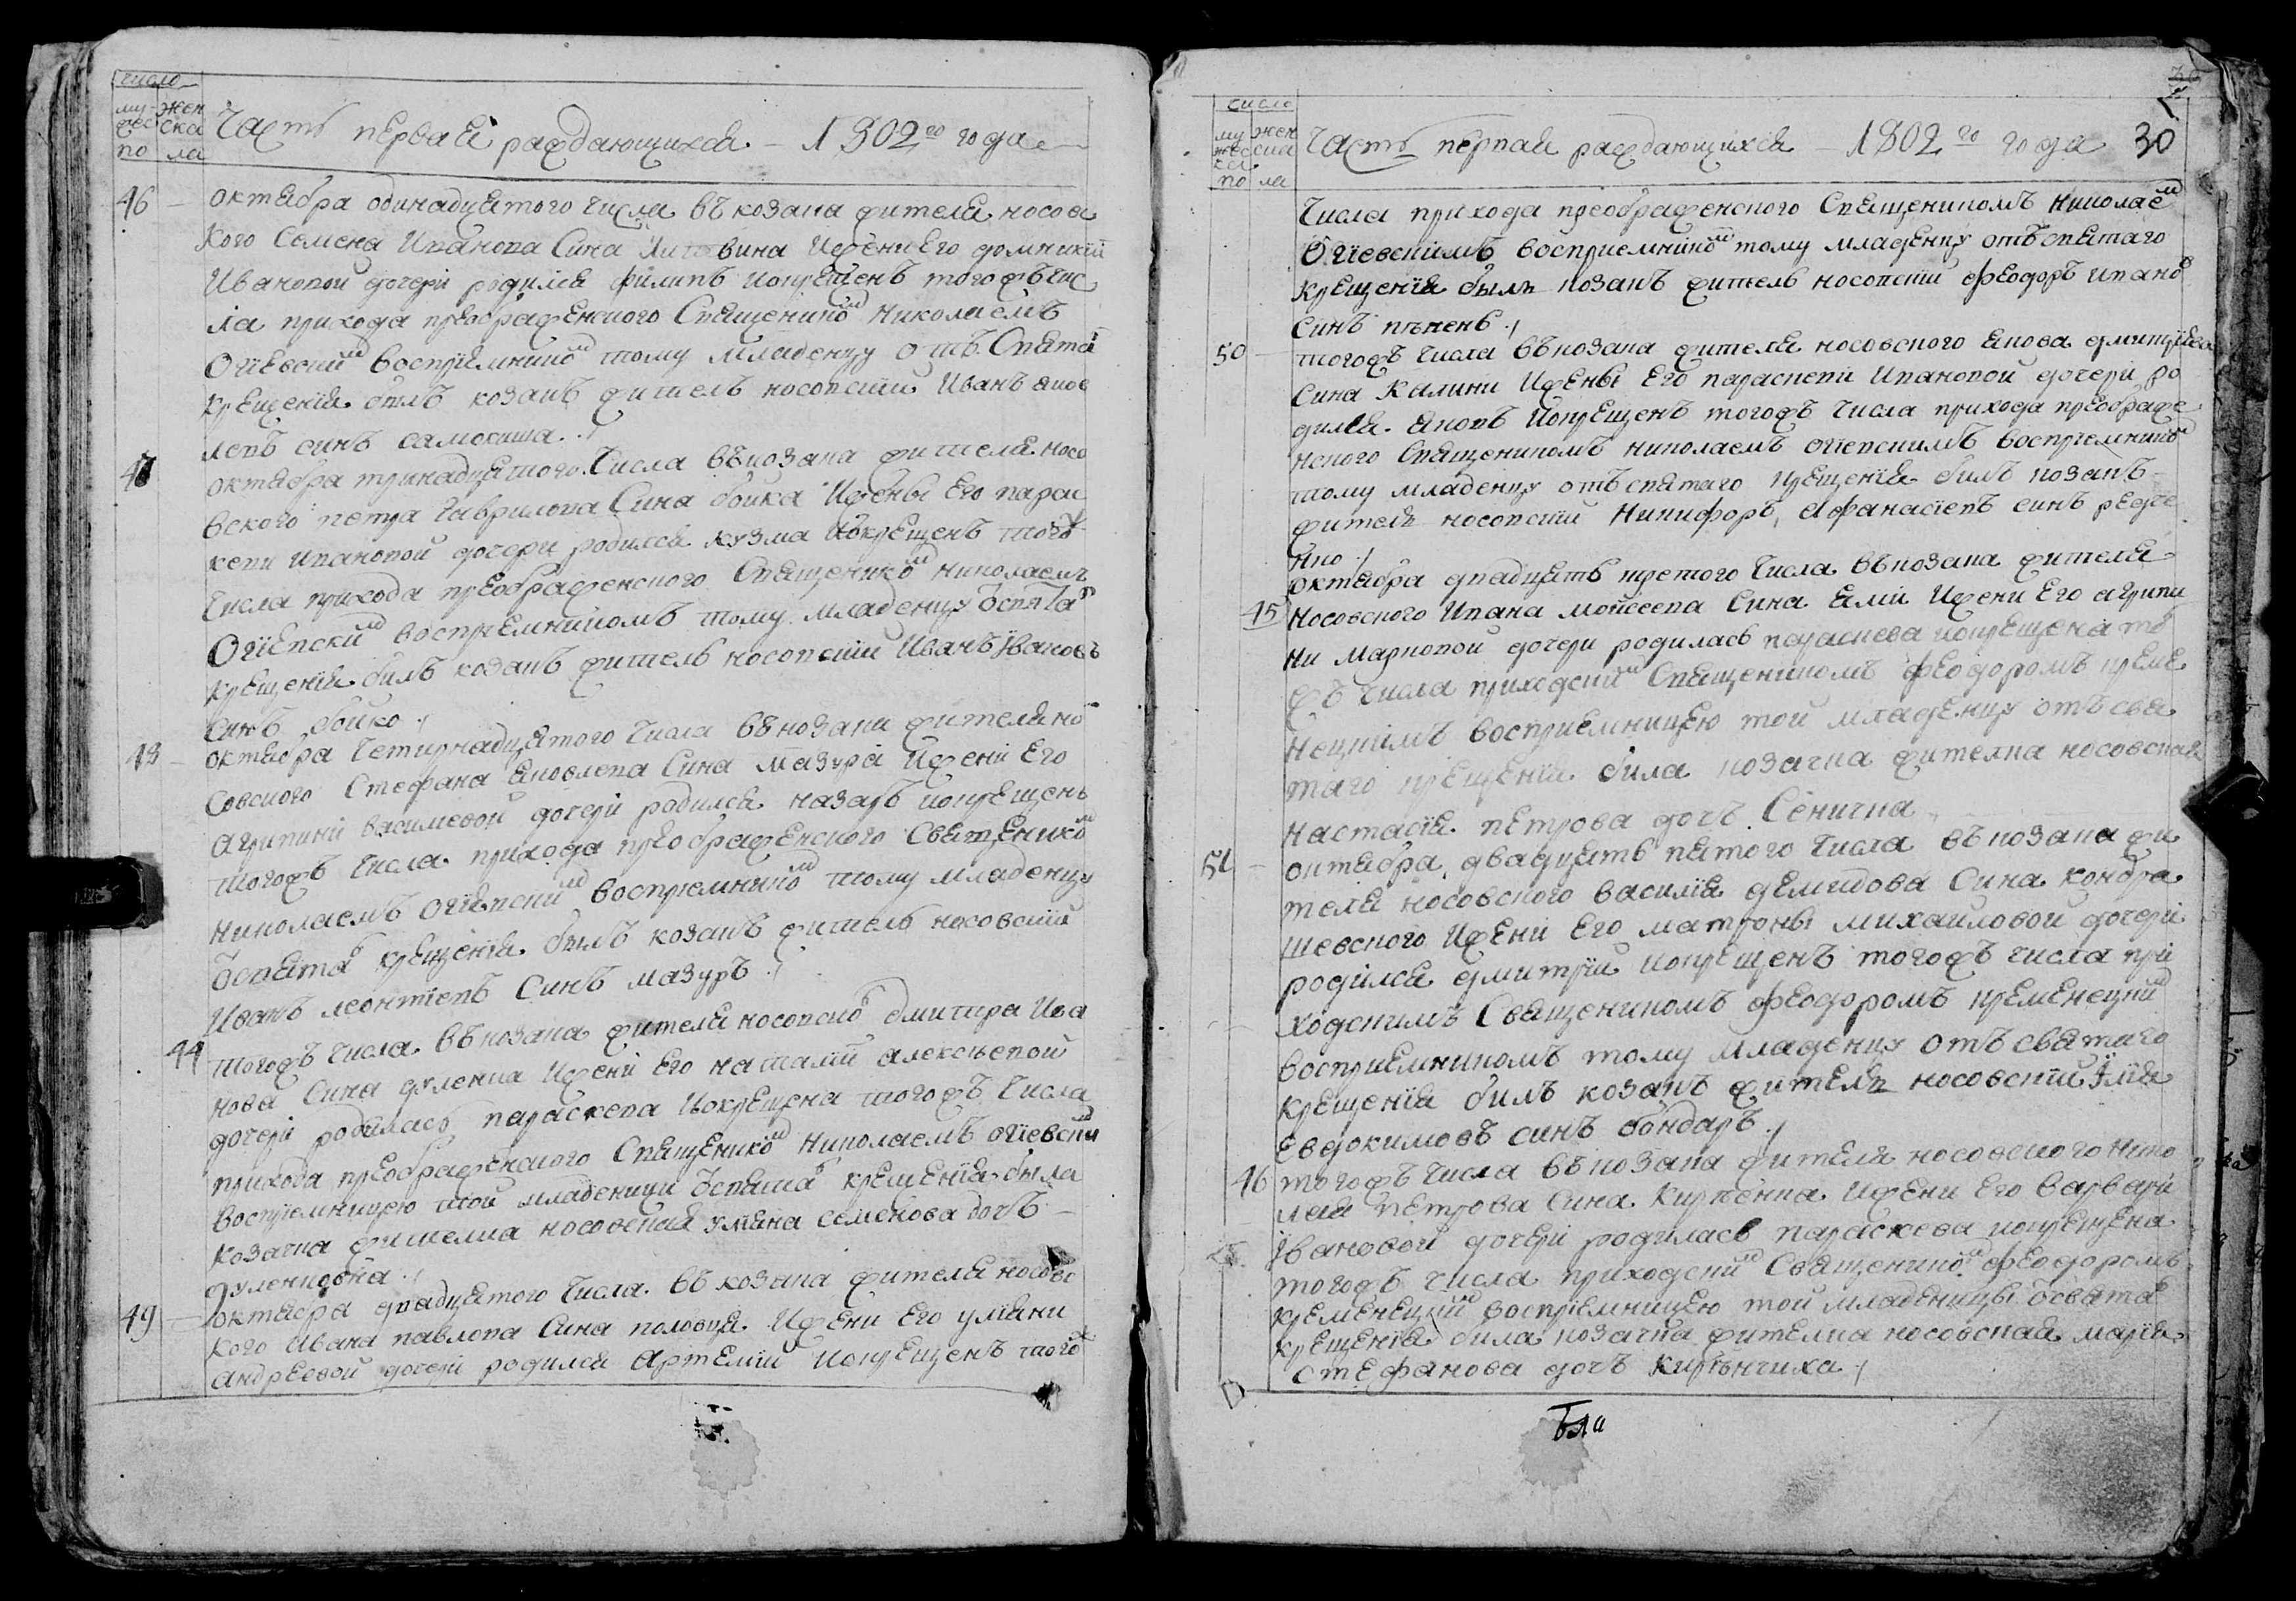 число
му- жен
жес ска
по ла
Часть первая раждающихся – 1802го года
46 октября одинадцятого числа въ козака жителя носов
кого Семена Иванова Сина Литвина Ижени Его домникии
Ивановой дочери родился филипъ Иокрещенъ тогожъ чис
ла прихода преображенского Священикомъ Николаемъ
Огиевскимъ Восприемникомъ тому младенцу отъ Святаг
крещения былъ козакъ житель носовский Иванъ яков
левъ синъ самокиша ./
47 октября тринадцятого Числа въ козака жителя носо
вского петра Гаврилова Сина бойка Ижены Его парас
кеви Ивановой дочери родился кузма Иокрещенъ того
числа прихода преображенского Священикомъ николаемъ
Огиевскимъ восприемникомъ тому младенцу ѿ свята
крещения билъ козакъ житель носовский Иванъ Ивановъ
синъ бойко ./
48 октября четирнадцятого числа въ козака жителя но
совского Стефана яковлева Сина мазура Ижени Его
агрипини василиевой дочери родился назаръ иокрещенъ
тогожъ числа прихода преображенского Священикомъ
николаемъ огиевскимъ восприемникомъ тому младенцу
ѿ свята крещения былъ козакъ житель носовский
Иванъ леонтиевъ Синъ мазуръ ./
44 тогожъ числа въ козака жителя носовско дмитра Ива
нова Сина дуленка Ижени Его наталии алексѣевой
дочери родилась параскева Иокрещена тогожъ числа
прихода преображенского Священикомъ Николаемъ огиевским
восприемницею той младеници ѿ свята крещения была
козачка жителка носовская улияна семенова дочъ –
дуленковна ./
49 октября двадцятого числа въ козака жителя носовс
кого Ивана павлова Сина половця Ижени Его улияни
андреевой дочери родился Артемий Иокрещенъ того
число
му жен
жес ска
ка
по ла
Часть первая раждающихся – 1802го года 30
числа прихода преображенского Священикомъ николаем
Огиевскимъ восприемником тому младенцу отъ святаго
крещения былъ козакъ житель носовский феодоръ ивано
синъ пѣнень ./
50 тогожъ числа въ козака жителя носовского якова дмитриева
Сина Калини Ижены Его параскеви Ивановой дочери ро
дился яковъ Иокрещенъ тогожъ числа прихода преображе
нского Священикомъ николаемъ огиевскимъ восприемнико
тому младенцу отъ святаго крещения билъ козакъ
житель носовский Никифоръ Афанасиевъ синъ редче
нко ./
октября двадцять третого числа въ козака жителя
45 Носовского Ивана мойсеева Сина ями Ижени Его агрипи
ни Марковой дочери родилась параскева иокрещена то
жъ числа приходским Священикомъ феодоромъ креме
нецкимъ восприемницею той младенцу отъ свя
таго крещения била козачка жителка носовская
настасия петрова дочъ Сенична
51 октября двадцять пятого числа въ козака жи
теля носовского василия демидова Сина кондра
шевского Ижени Его матроны михайловой дочери
родился дмитрий иокрещенъ тогожъ числа при
ходскимъ Священикомъ феодоромъ кременецким
восприемникомъ тому младенцу отъ святаго
крещения билъ козакъ житель носовский Илия
евдокимовъ синъ бондаръ ./
46 тогожъ числа въ козака жителя носовского Нико
лая Петрова Сина Кирпенка Ижени Его варвари
Ивановой дочери родилась параскева иокрещена
тогожъ числа приходским Священико феодоромъ
кременецким восприемницею той младеници ѿ свята
крещения била козачка жителка носовская мария
стефанова дочъ Кирпѣнчиха ./